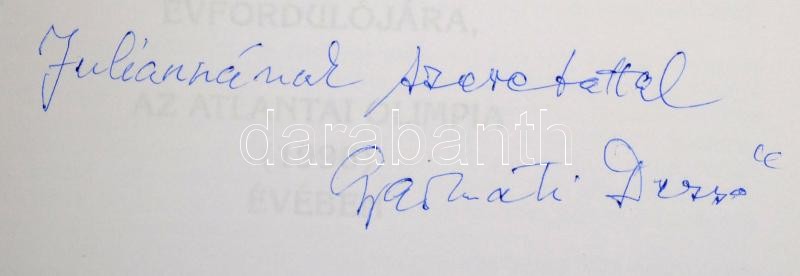 ÉVFORDULÓJÁRA,
Juliannának szeretettel
AZ ATLANTAI OLIMPIA
darabanth
Gyarmati Dezső
ÉVÉBEN